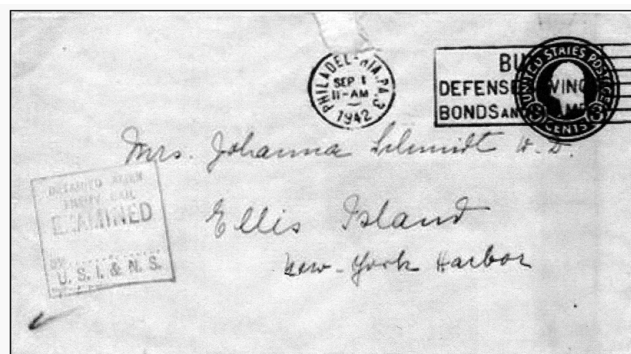 PHILADELPHIA, PA. 3
SEP 1
11-AM
1942
BU
DEFENSE VING
BONDS AN MP
UNITED STATES POSTAGE
3 3
CENTS
Mrs. Johanna Schmidt W. D.
Ellis Island
New-York Harbor
DETAINED ALIEN
ENEMY MAIL
EXAMINED
BY
U. S. I. & N. S.